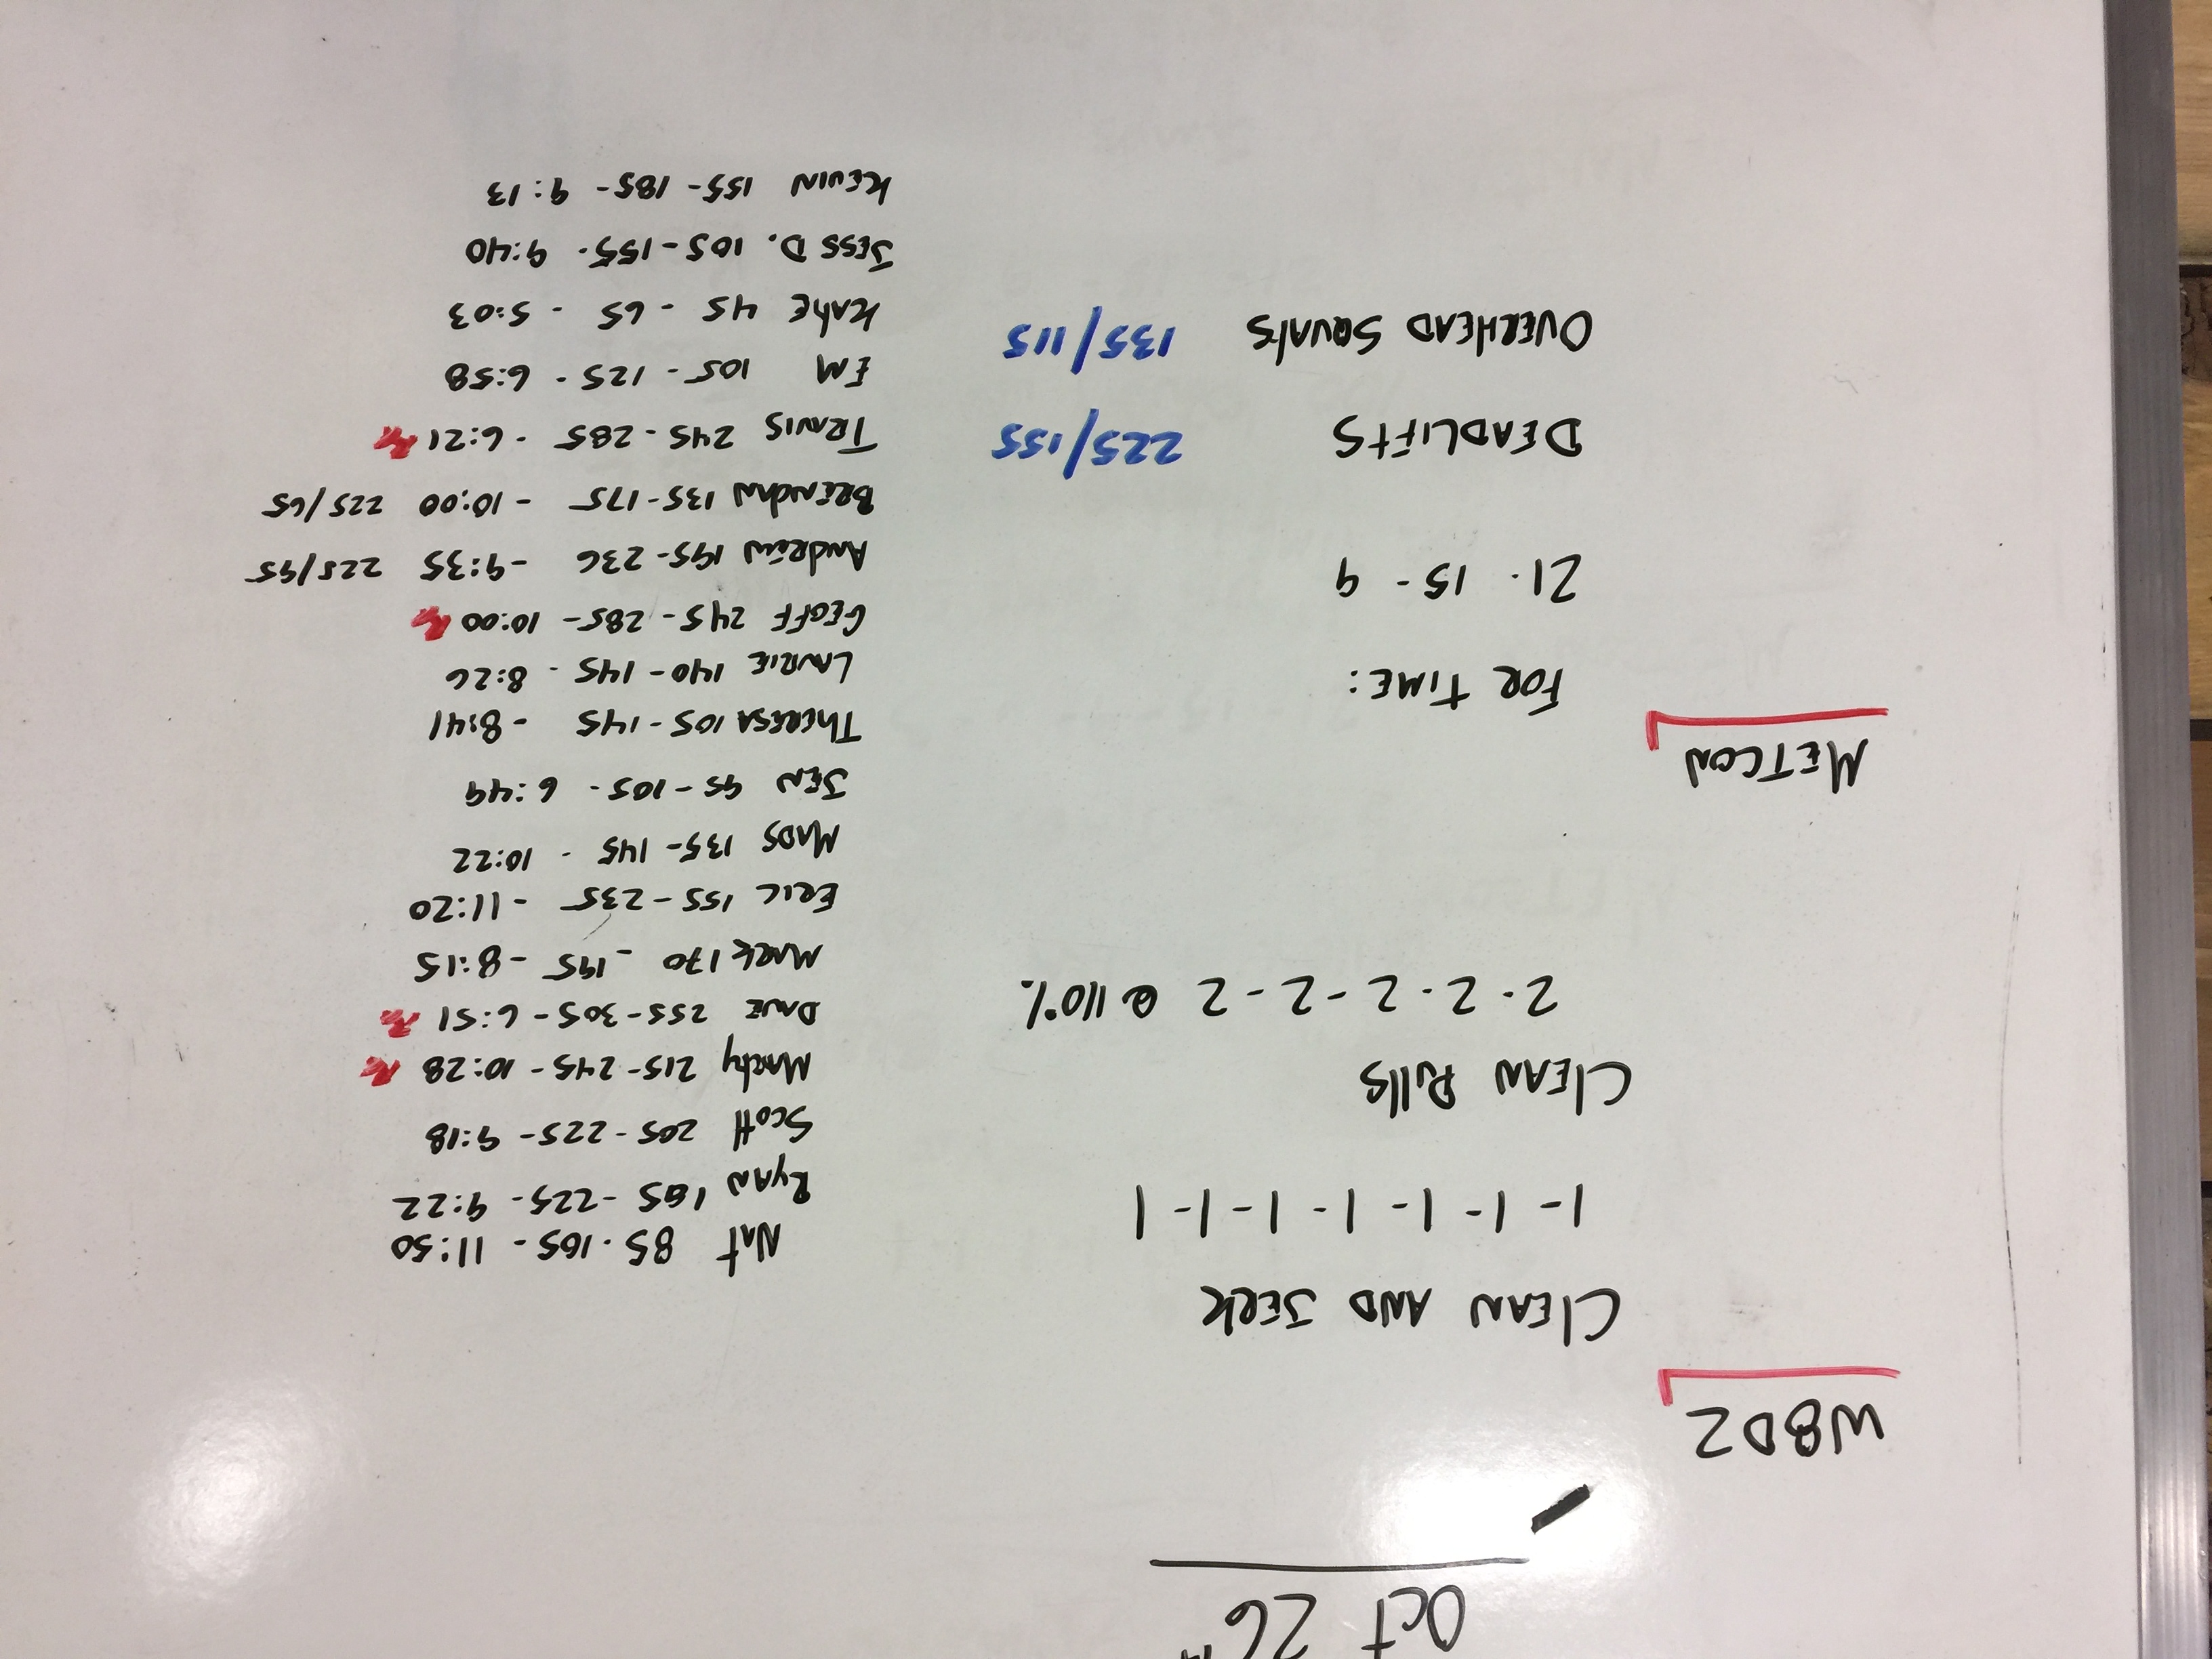 Oct 26th
W8D2
CLEAN AND JERK
1-1-1-1-1-1-1
CLEAN Pulls
2-2-2-2-2 @ 110%
METCON
FOR TIME:
21-15-9
DEADLIFTS 225/155
OVERHEAD SQUATS 135/115
Nat 85-105-11:50
RYAN 185-225-9:22
Scott 205-225-9:18
Marty 215-245-10:28 Rx
DAVE 255-305-6:51 Rx
MARK 170-195-8:15
ERIC 155-235-11:20
MADS 135-145-10:22
JEN 95-105-6:49
THERESA 105-145-8:41
LAURIE 140-145-8:26
GEOFF 245-285-10:00 Rx
ANDREW 195-236-9:35 225/95
BRENDAN 135-175-10:00 225/65
TRAVIS 245-285-6:21 Rx
EM 105-125-6:58
KATIE 45-65-5:03
JESS D. 105-155-9:40
KEVIN 155-185-9:13